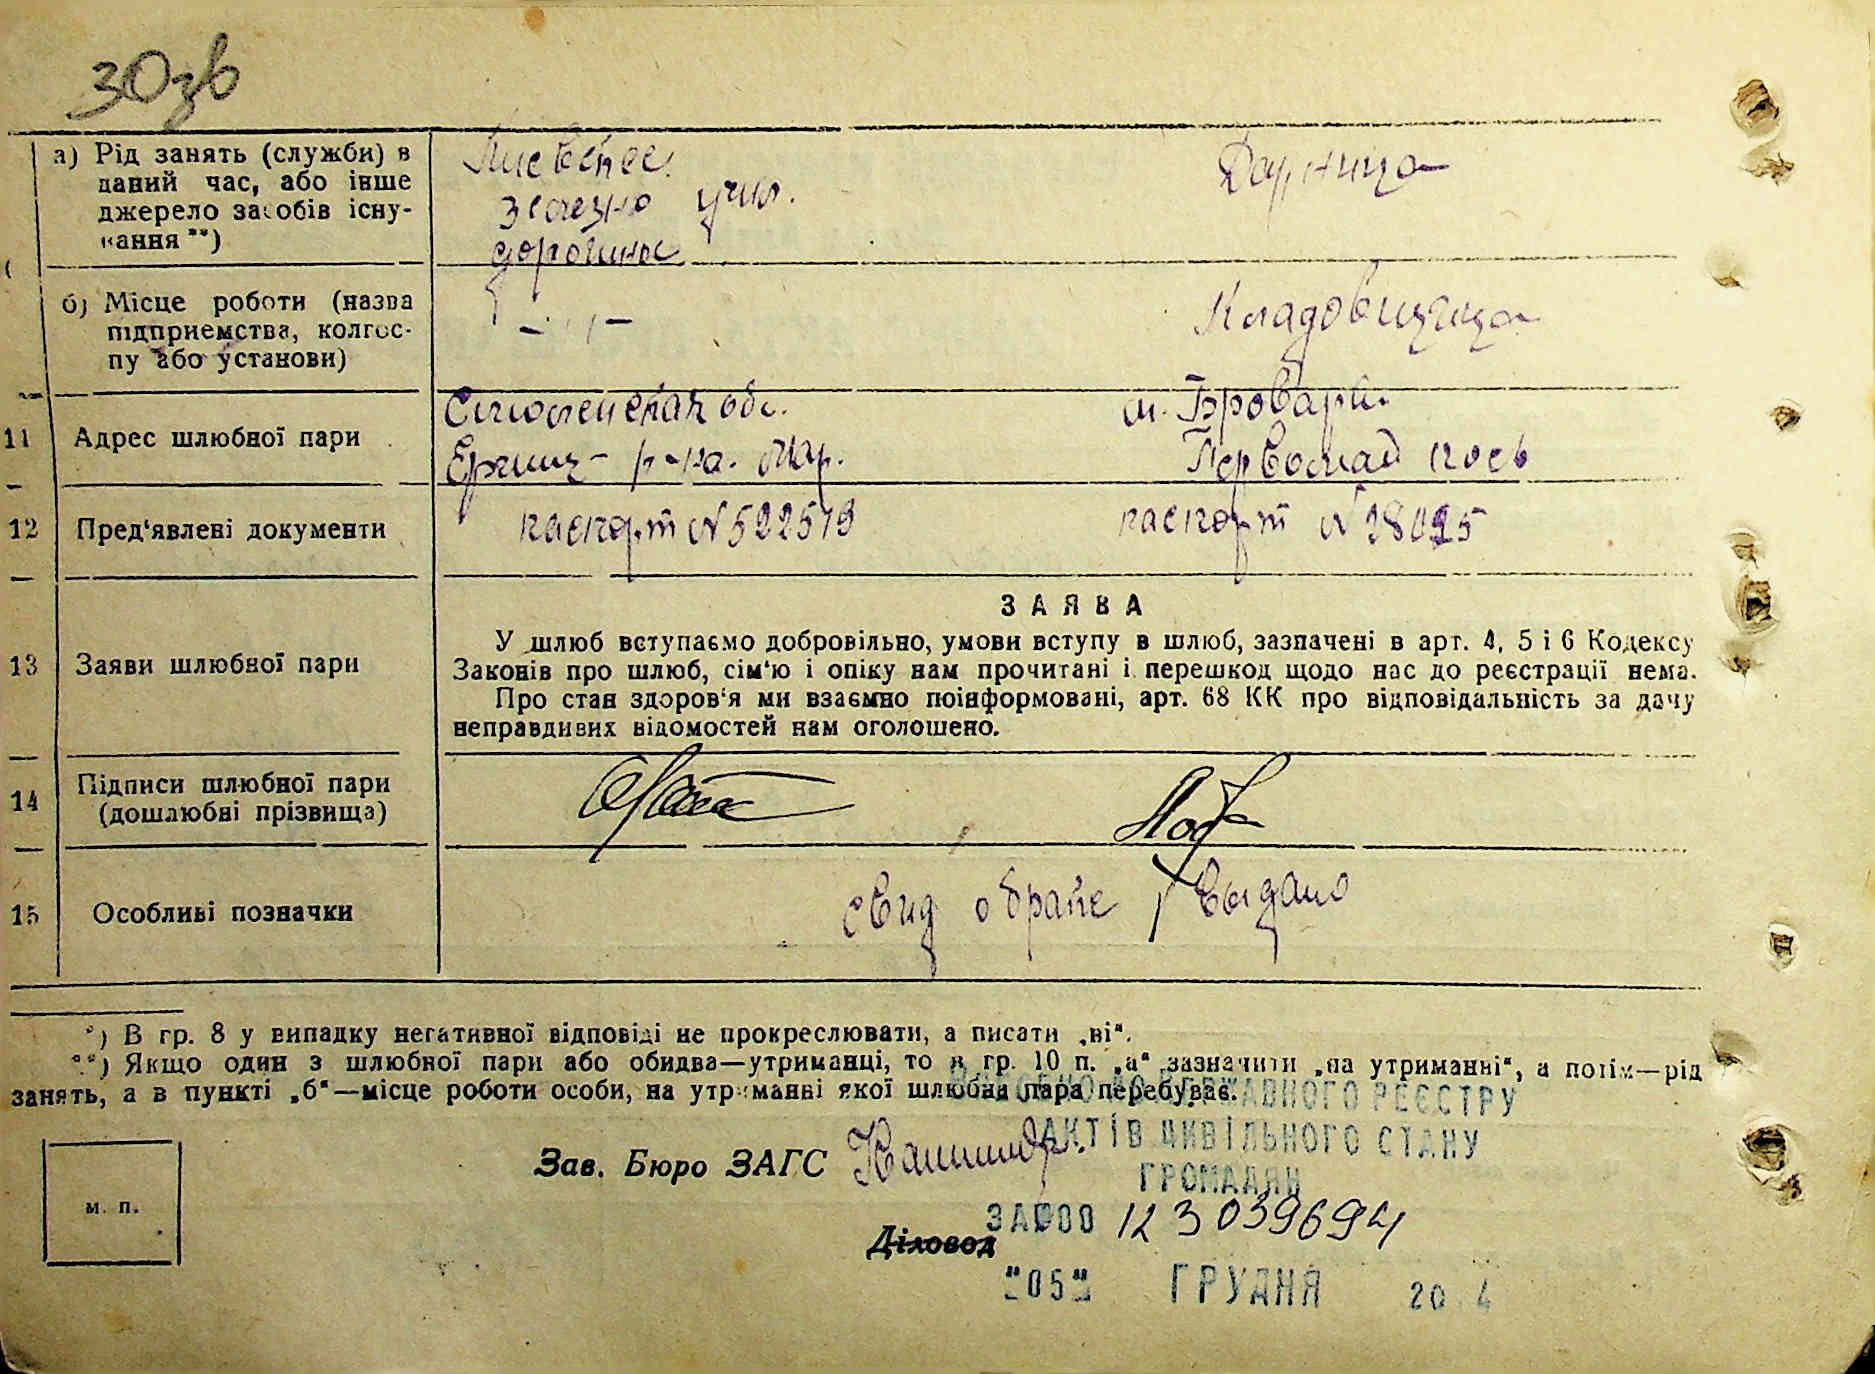 303в
а) Рід занять (служби) в даний час, або інше джерело засобів існування **)
железно учил.
дорожное
Дарница
б) Місце роботи (назва підприємства, колгоспу або установи)
— " —
Кладовщица
11 Адрес шлюбної пари
Смоленская обл.
р-на.
м. Бровари.
Первомай пось
12 Пред'явлені документи
паспорт № 522519
паспорт №
13 Заяви шлюбної пари
ЗАЯВА
У шлюб вступаємо добровільно, умови вступу в шлюб, зазначені в арт. 4, 5 і 6 Кодексу
Законів про шлюб, сім'ю і опіку нам прочитані і перешкод щодо нас до реєстрації нема.
Про стан здоров'я ми взаємно поінформовані, арт. 68 КК про відповідальність за дачу
неправдивих відомостей нам оголошено.
14 Підписи шлюбної пари (дошлюбні прізвища)
15 Особливі позначки
свид о браке выдано
*) В гр. 8 у випадку негативної відповіді не прокреслювати, а писати „ні“.
**) Якщо один з шлюбної пари або обидва—утриманці, то в гр. 10 п. „а“ зазначити „на утриманні“, а потім—рід
занять, а в пункті „б“—місце роботи особи, на утриманні якої шлюбна пара перебуває.
ДЕРЖАВНОГО РЕЄСТРУ
АКТІВ ЦИВІЛЬНОГО СТАНУ
ГРОМАДЯН
Зав. Бюро ЗАГС
м. п.
Діловод
123039694
"05" ГРУДНЯ 20 4